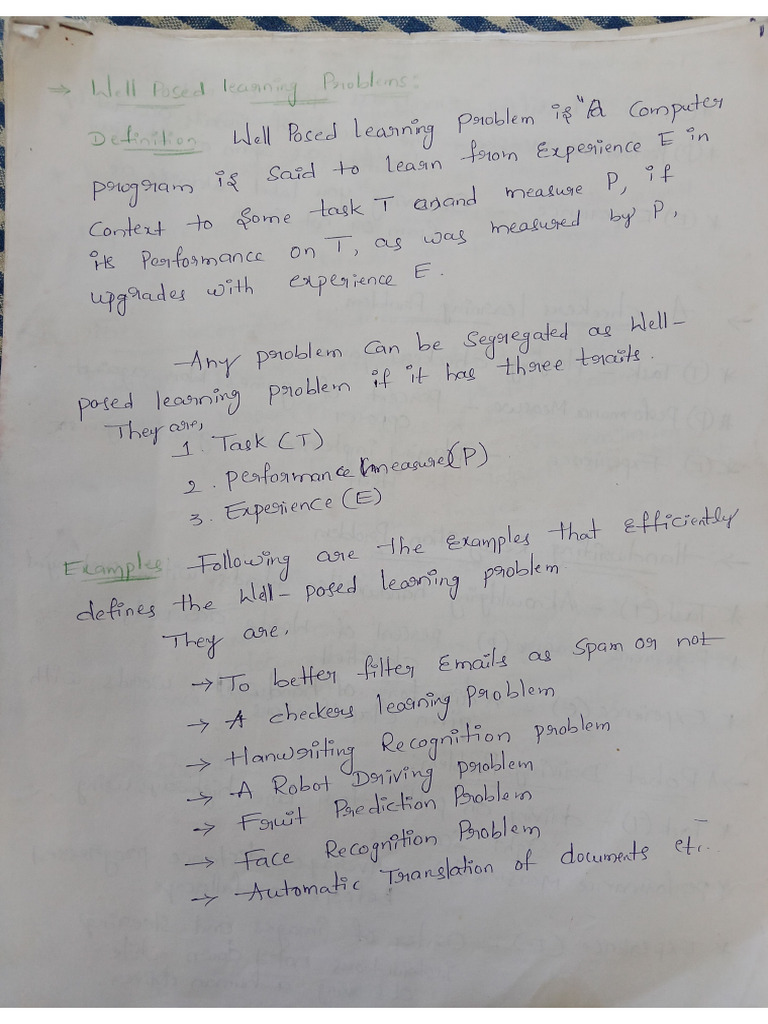 → Well Posed learning Problems:
Definition Well Posed learning problem is "A Computer
program is said to learn from Experience E in
Context to some task T and measure P, if
its Performance on T, as was measured by P,
upgrades with experience E.
- Any problem can be segregated as Well-
posed learning problem if it has three traits.
They are,
1. Task (T)
2. Performance measure (P)
3. Experience (E)
Examples: Following are the examples that efficiently
defines the Well-posed learning problem.
They are,
→ To better filter Emails as spam or not
→ A checkers learning problem
→ Hanwriting Recognition problem
→ A Robot Driving problem
→ Fruit Prediction Problem
→ Face Recognition Problem
→ Automatic Translation of documents etc..